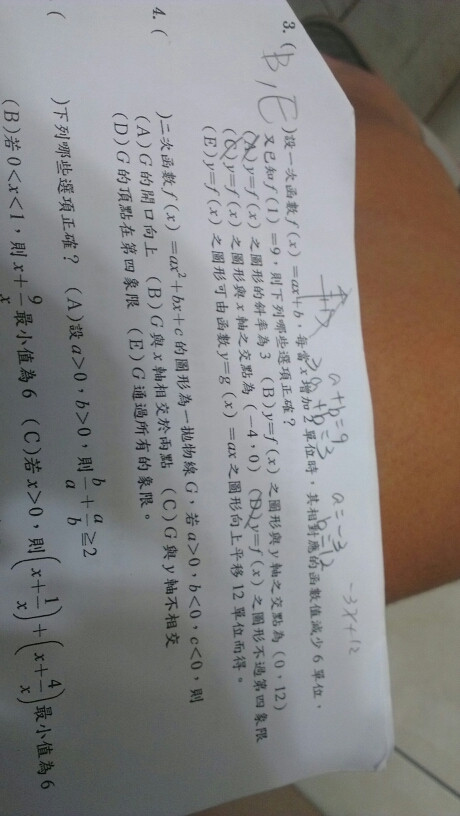 a+b=9
3a+b=3
a=-3
b=12
-3x+12
3. (B, E)設一次函數f(x)=ax+b,每當x增加2單位時,其相對應的函數值減少6單位,
又已知f(1)=9,則下列哪些選項正確?
(A)y=f(x)之圖形的斜率為3 (B)y=f(x)之圖形與y軸之交點為(0,12)
(C)y=f(x)之圖形與x軸之交點為(-4,0) (D)y=f(x)之圖形不過第四象限
(E)y=f(x)之圖形可由函數y=g(x)=ax之圖形向上平移12單位而得。
4. ( )二次函數f(x)=ax²+bx+c的圖形為一拋物線G,若a>0,b<0,c<0,則
(A)G的開口向上 (B)G與x軸相交於兩點 (C)G與y軸不相交
(D)G的頂點在第四象限 (E)G通過所有的象限。
( )下列哪些選項正確? (A)設a>0,b>0,則b/a+a/b≧2
(B)若0<x<1,則x+9/x最小值為6 (C)若x>0,則(x+1/x)+(x+4/x)最小值為6